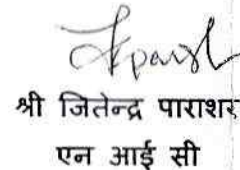 श्री जितेन्द्र पाराशर
एन आई सी